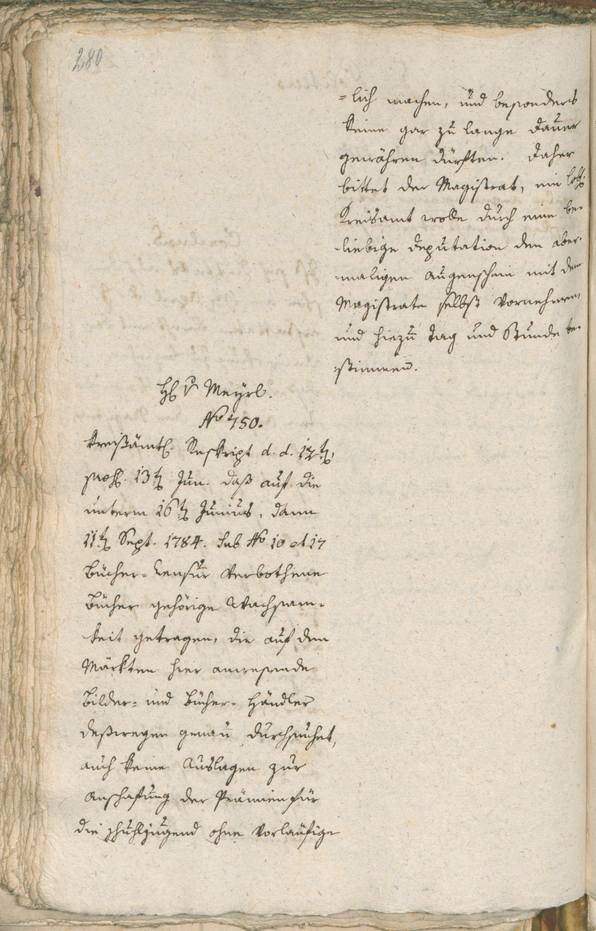 280
=lich machen, und besonders
keine gar zu lange Dauer
gewähren dürften. Daher
bittet der Magistrat, ein löbl.
Kreisamt wolle durch eine be=
liebige Deputation den aber=
maligen Augenschein mit dem
Magistrate selbst vornehmen,
und hiezu Tag und Stunde be=
stimmen.
H v Meyrl.
No 750.
Kreisämtl. Reskript d. d. 12t,
praes. 13t Jun. daß auf die
unterm 16t Junius, dann
11t Sept. 1784. sub No 10 et 17
Bücher=Censur verbothene
Bücher gehörige Wachsam=
keit getragen, die auf den
Märkten hier anwesende
Bilder= und Bücher=Händler
deßwegen genau durchsuchet,
auch keine Auslagen zur
Anschafung der Prämien für
die Schuhljugend ohne vorläufige